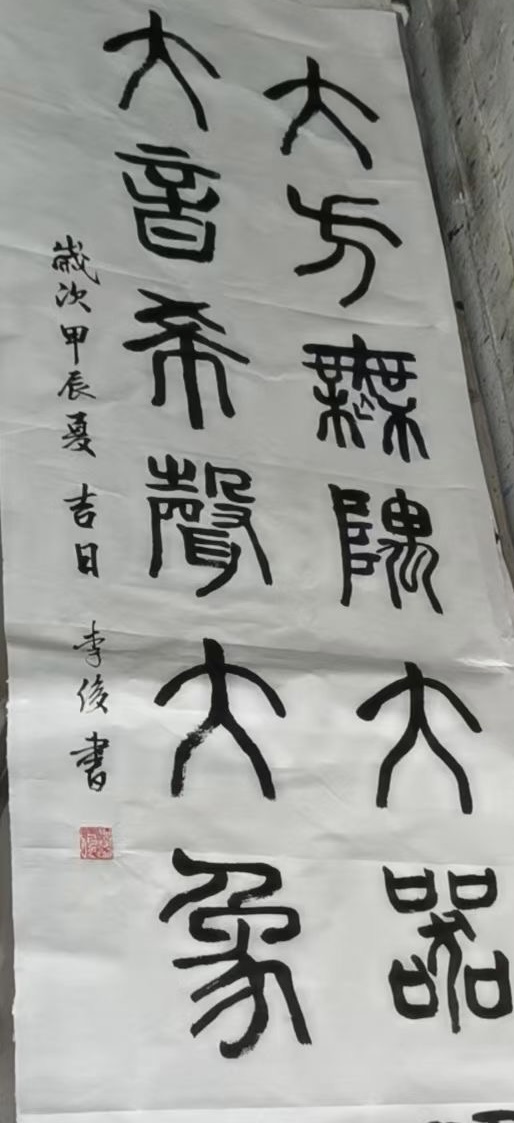 大方無隅大器
大音希聲大象
歲次甲辰夏吉日李俊書